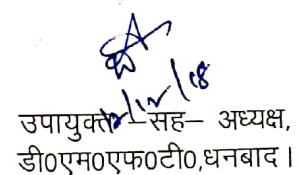 12/12/18
उपायुक्त –सह– अध्यक्ष,
डी0एम0एफ0टी0,धनबाद।